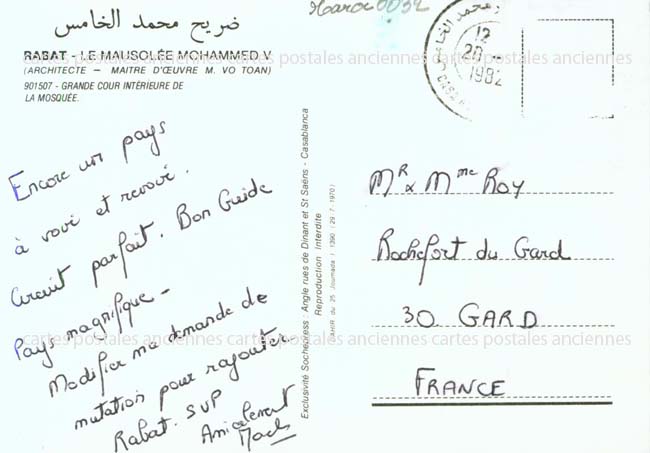 ضريح محمد الخامس
RABAT - LE MAUSOLÉE MOHAMMED V
(ARCHITECTE — MAITRE D'ŒUVRE M. VO TOAN)
901507 - GRANDE COUR INTÉRIEURE DE
LA MOSQUÉE.
Maroc 0032
محمد الخامس
12
20 -
1982
cartes postales anciennes cartes postales anciennes cartes postales anciennes
Encore un pays
à voir et revoir.
Circuit parfait. Bon Guide
Pays magnifique -
Modifier ma demande de
mutation pour rajouter
Rabat. SVP
Amicalement
Exclusivité Sochepress : Angle rues de Dinant et St Saëns - Casablanca
Reproduction Interdite
(DAHIR du 25 Joumada I 1390 (29-7-1970)
MR & Mme ROY
Rochefort du Gard
30 GARD
FRANCE
cartes postales anciennes cartes postales anciennes cartes postales anciennes